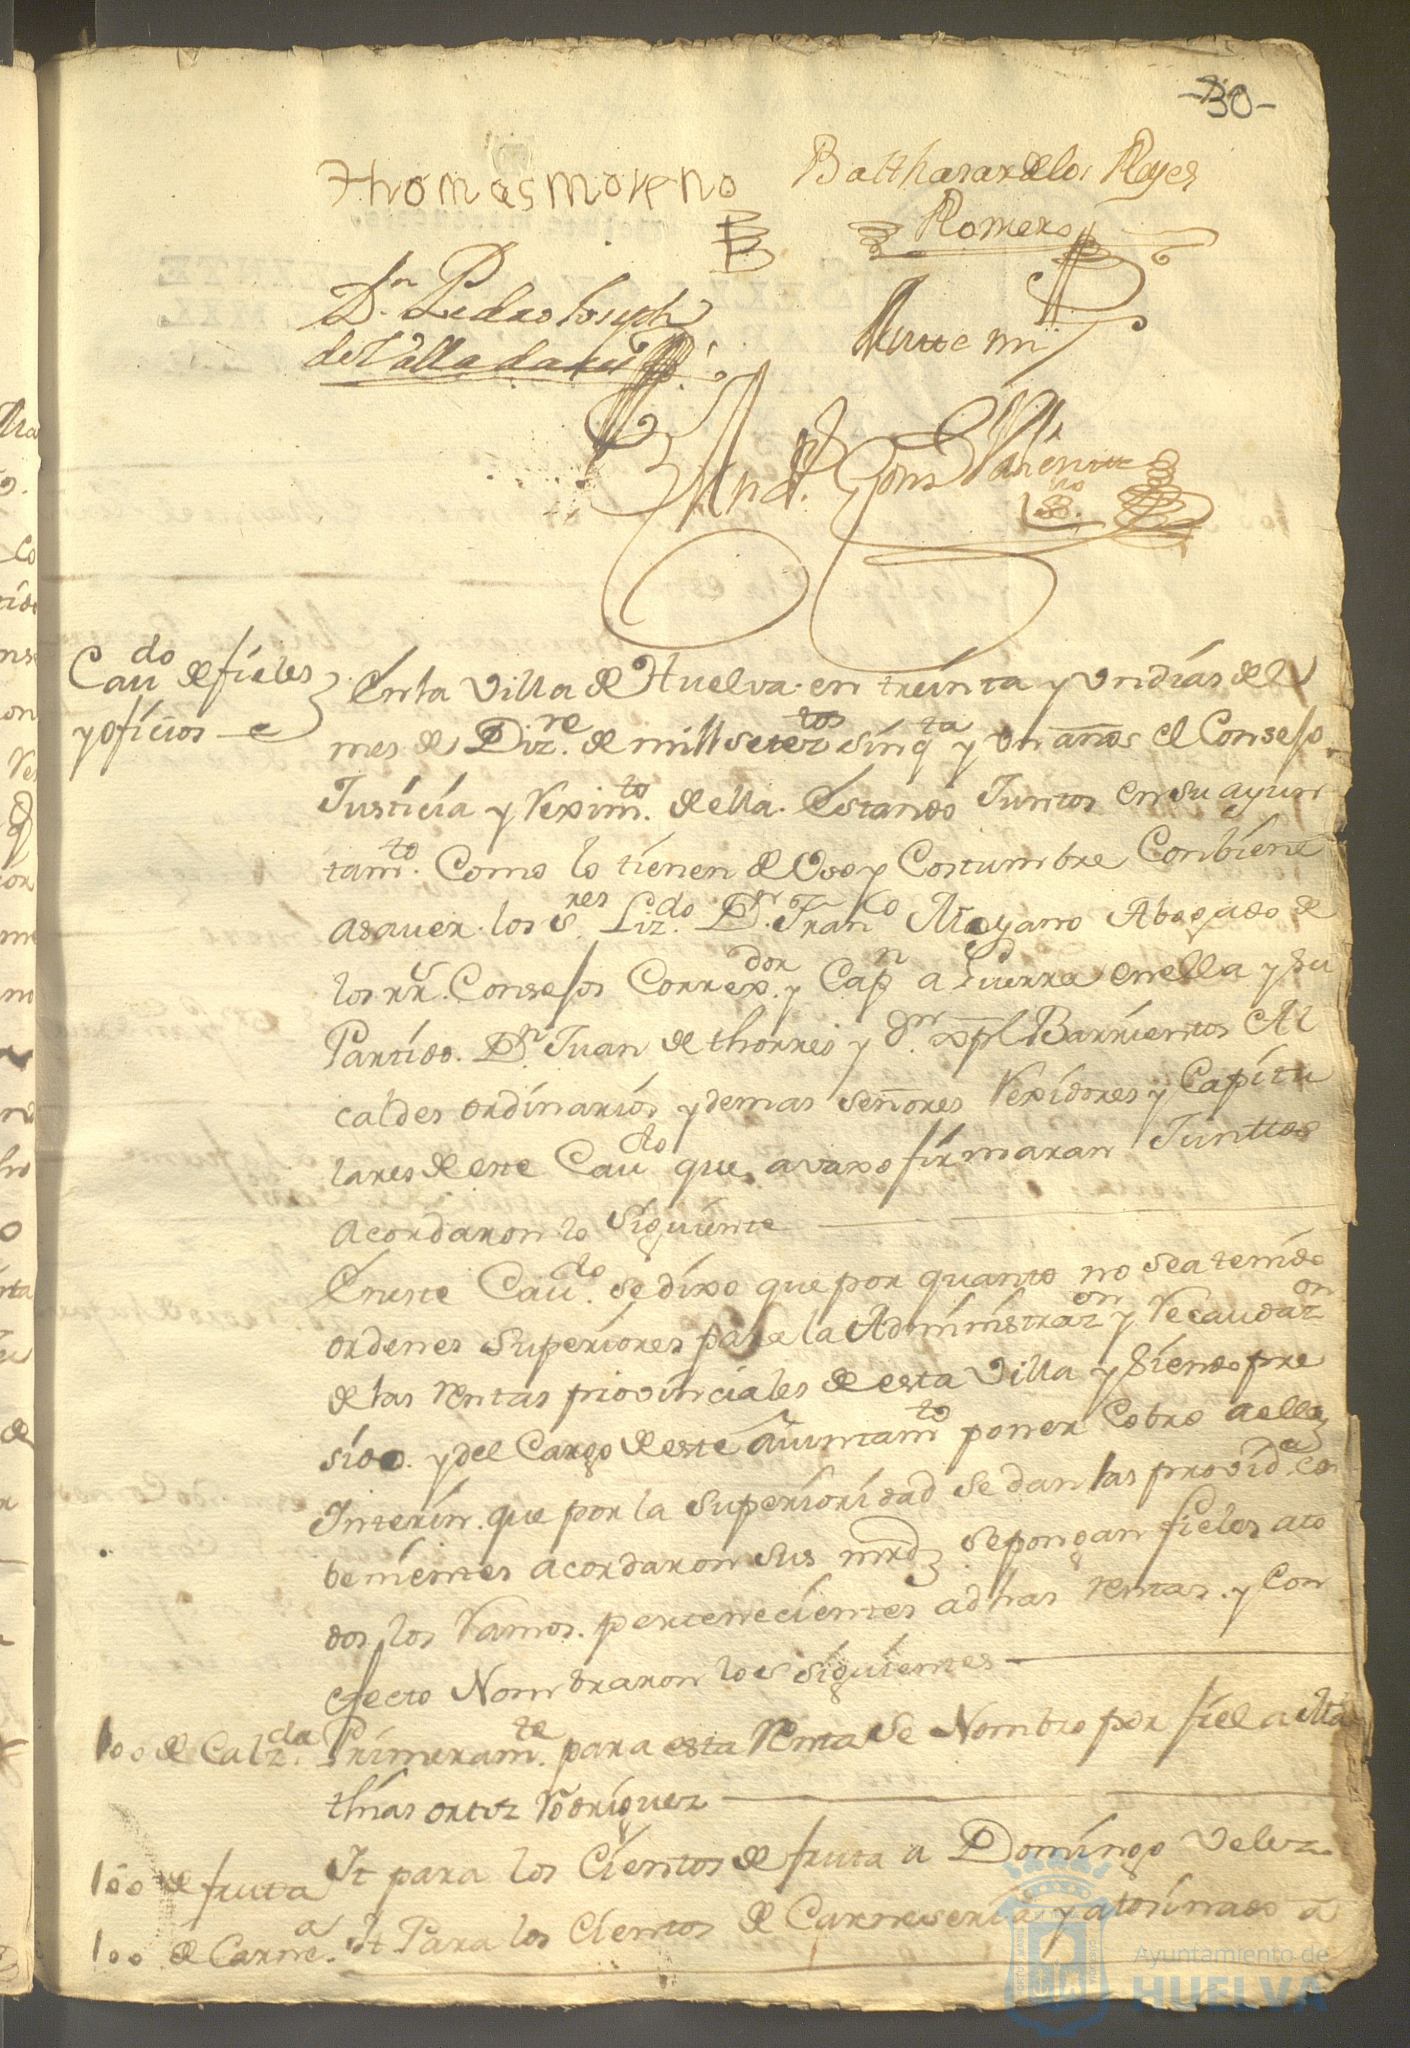 -30-
Thomas Moreno
Balthasar de los Reyes
Romero
Dn. Pedro Joseph
de Valladares
Ante mi
Andr. Gonz
Cavdo de fieles
y oficios
En la Villa de Huelva en treinta y un dias del
mes de Dizre. de mill setezto sinqta y un años el Consejo
Justicia y Reximto. de ella. Estando Juntos en su ayun
tamto. Como lo tienen de Uso y Costumbre Conbiene
asaver los Sres. Lizdo. Dn. Franco Moyano Abogado de
los RR. Consejos Correxdor. y Capn a Guerra en ella y su
Partido. Dn. Juan de thorres y Dn. Xpl Barrientos Al
caldes ordinarios y demas señores Rexidores y Capitu
lares de este Cavdo que avaxo firmaran Junttos
Acordaron lo siguiente
En este Cavdo. se dixo que por quanto no se a tenido
ordenes superiores para la Administrazon y Recaudazon
de las rentas provinciales de esta Villa y siendo pre
siso. y del Cargo de este Aiuntamto poner Cobro a ellas
Interin que por la superioridad se dan las providas con
benientes acordaron sus mrds se pongan fieles a to
dos los Ramos. pertenecientes a dhas rentas. y Con
efecto Nombraron los siguientes
100 de Calzda. Primeramte. para esta Renta se Nombro por fiel a Ma
thias ortiz Rodriguez
100 de fruta It para los Cientos de fruta a Domingo Velez
100 de Carnea. It Para los Cientos de Carneseria y atosinado a
Ayuntamiento de
HUELVA